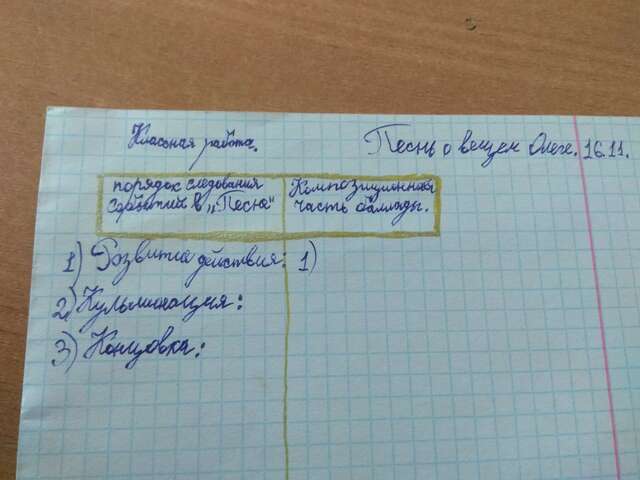 Классная работа.
Песнь о вещем Олеге. 16.11.
порядок следования
событий в „Песне“
Композиционная
часть баллады.
1) Развитие действия: 1)
2) Кульминация:
3) Концовка: